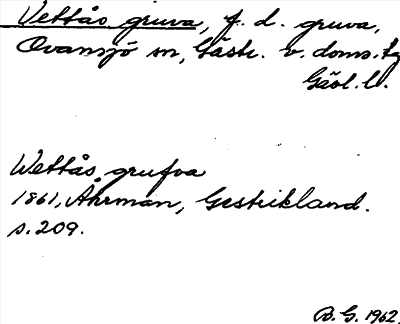 Vettås gruva, f. d. gruva,
Ovansjö sn, Gästr. v. doms.tg
Gävl. l.
Wettås grufva
1861, Åhrman, Gestrikland.
s. 209.
B. G. 1962.